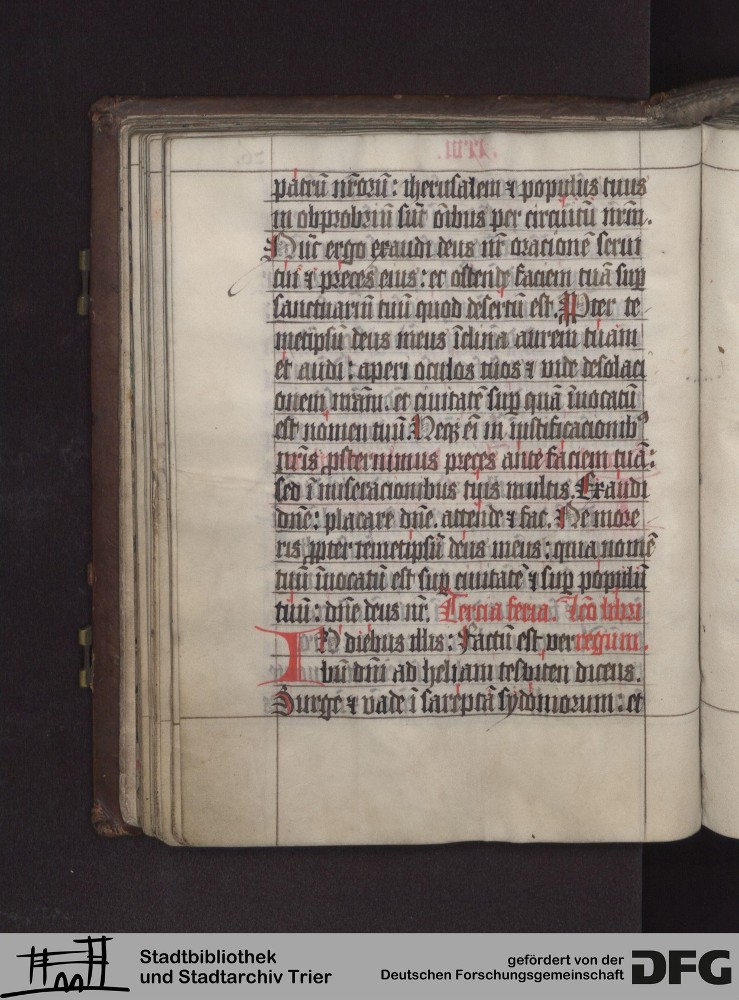 patrū nr̄orū: iherusalem ⁊ populus tuus
in obprobriū sūt oībus per circuitū nrm̄.
Nūc ergo exaudi deus nr̄ orationē serui
tui ⁊ preces eius: et ostende faciem tuā sup̱
sanctuariū tuū quod desertū est. Ꝓpter te
metipsū deus meus īclina aurem tuam
et audi: aperi oculos tuos ⁊ vide desolaci
onem nr̄am. et ciuitatē sup̱ quā īuocatū
est nomen tuū. Neqꝫ eī in iustificacionibꝰ
nr̄is ꝓsternimus preces ante faciem tuā:
sed ī miseracionibus tuis multis. Exaudi
dn̄e: placare dn̄e. attende ⁊ fac. Ne more
ris ꝓpter temetipsū deus meus: quia nomē
tuū īuocatū est sup̱ ciuitatē ⁊ sup̱ populū
tuū: dn̄e deus nr̄. Tercia feria. Lcō libri
IN diebus illis: Factū est ver regum.
bū dn̄i ad heliam tesbiten dicens.
Surge ⁊ vade ī sareptā sydoniorum: et
Stadtbibliothek
und Stadtarchiv Trier
gefördert von der
Deutschen Forschungsgemeinschaft
DFG